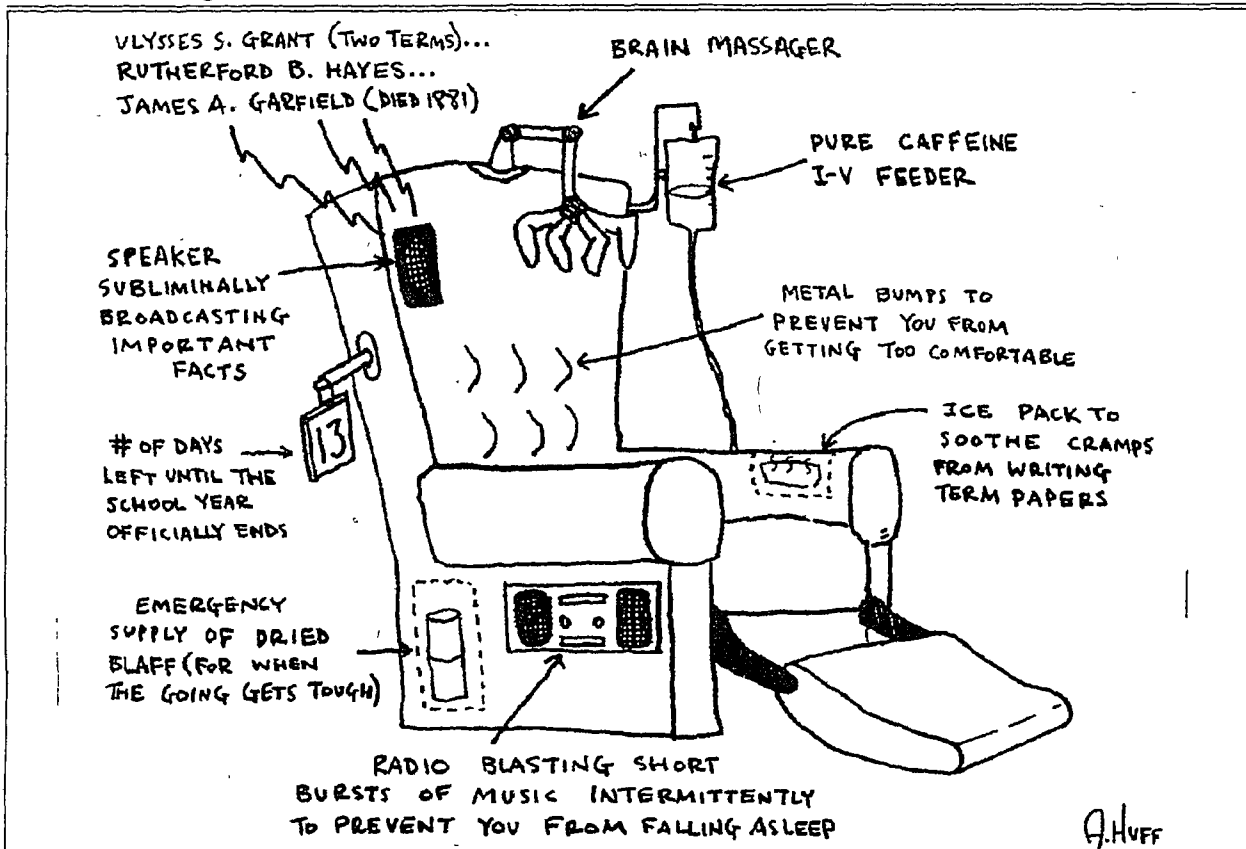 ULYSSES S. GRANT (TWO TERMS)...
RUTHERFORD B. HAYES...
JAMES A. GARFIELD (DIED 1881)
BRAIN MASSAGER
PURE CAFFEINE
I-V FEEDER
SPEAKER
SUBLIMINALLY
BROADCASTING
IMPORTANT
FACTS
METAL BUMPS TO
PREVENT YOU FROM
GETTING TOO COMFORTABLE
13
# OF DAYS
LEFT UNTIL THE
SCHOOL YEAR
OFFICIALLY ENDS
ICE PACK TO
SOOTHE CRAMPS
FROM WRITING
TERM PAPERS
EMERGENCY
SUPPLY OF DRIED
BLAFF (FOR WHEN
THE GOING GETS TOUGH)
RADIO BLASTING SHORT
BURSTS OF MUSIC INTERMITTENTLY
TO PREVENT YOU FROM FALLING ASLEEP
A. HUFF